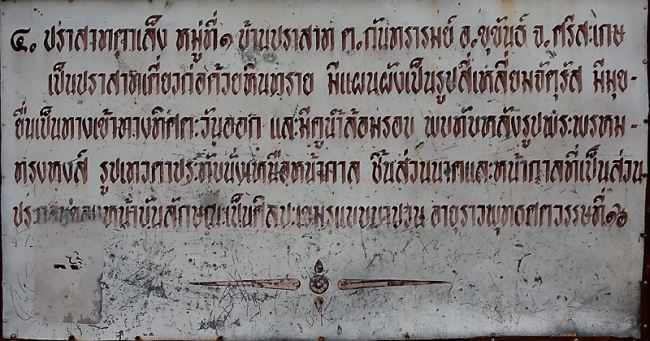 ๔. ปราสาทตาเล็ง หมู่ที่๑ บ้านปราสาท ต.กันทรารมย์ อ.ขุขันธ์ จ.ศรีสะเกษ
เป็นปราสาทเดี่ยวก่อด้วยหินทราย มีแผนผังเป็นรูปสี่เหลี่ยมจัตุรัส มีมุข-
ยื่นเป็นทางเข้าทางทิศตะวันออก และมีคูน้ำล้อมรอบ พบทับหลังรูปพระพรหม-
ทรงหงส์ รูปเทวดาประทับนั่งเหนือหน้ากาล ชิ้นส่วนนาคและหน้ากาลที่เป็นส่วน-
ประกอบของหน้าบันลักษณะเป็นศิลปะเขมรแบบบาปวน อายุราวพุทธศตวรรษที่๑๖